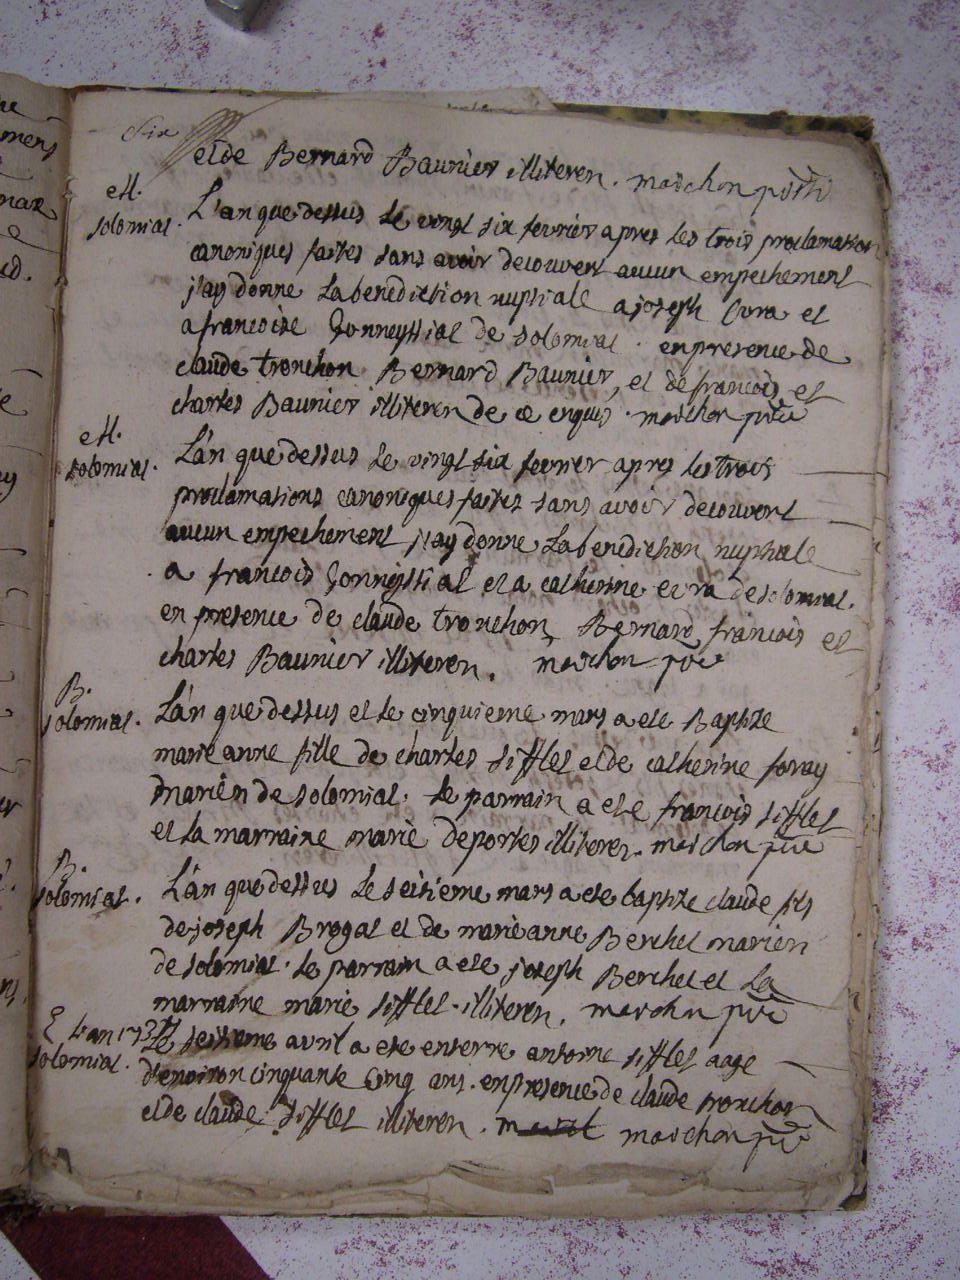 Six
et de Bernard Baunier illiteren. marchon
M.
solomial.
L'an que dessus le vingt six fevrier apres les trois proclamations
canoniques faites sans avoir decouvert aucun empechement
j'ay donne la benediction nuptiale a joseph Cura et
a francoise Gonneyssial de solomial. en presence de
claude tronchon Bernard Baunier, et de francois et
charles Baunier illiteren de ce enquis. marchon ptre
M.
solomial.
L'an que dessus le vingt six fevrier apres les trois
proclamations canoniques faites sans avoir decouvert
aucun empechement j'ay donne la benediction nuptiale
a francois Gonneissial et a catherine de solomial.
en presence de claude tronchon Bernard francois et
charles Baunier illiteren. marchon ptre
B.
solomial.
L'an que dessus et le cinquieme mars a ete Baptize
marie anne fille de charles sifflet et de catherine foray
marien de solomial. le parrain a ete francois sifflet
et la marraine marie deportes illiteren. marchon ptre
B.
solomial.
L'an que dessus le seisieme mars a ete baptize claude fils
de joseph Brogat et de marie anne Berchet marien
de solomial. le parrain a ete joseph Berchet et la
marraine marie sifflet. illiteren. marchon ptre
E
solomial.
L'an le seisieme avril a ete enterre antoine sifflet aage
d'environ cinquante cinq ans. en presence de claude tronchon
et de claude sifflet illiteren. marchon ptre